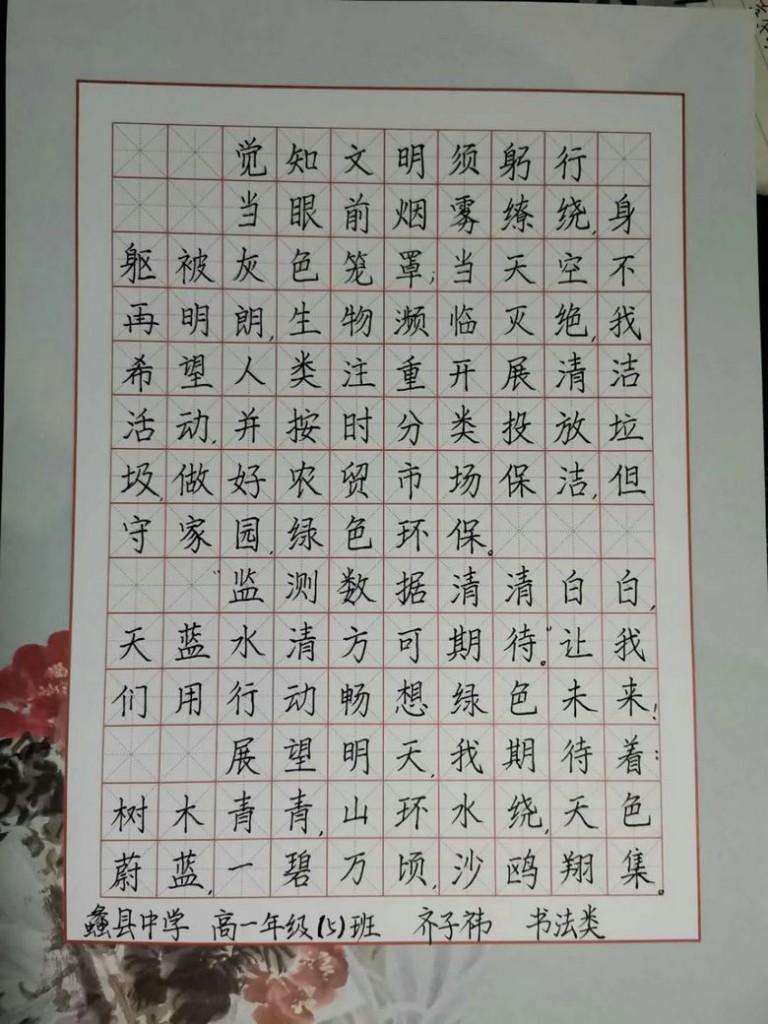 觉知文明须躬行
当眼前烟雾缭绕,身
躯被灰色笼罩;当天空不
再明朗,生物濒临灭绝,我
希望人类注重开展清洁
活动,并按时分类投放垃
圾,做好农贸市场保洁,但
守家园,绿色环保。
“监测数据清清白白,
天蓝水清方可期待。”让我
们用行动畅想绿色未来!
展望明天,我期待着:
树木青青,山环水绕,天色
蔚蓝,一碧万顷,沙鸥翔集。
蠡县中学 高一年级(5)班 齐子祎 书法类